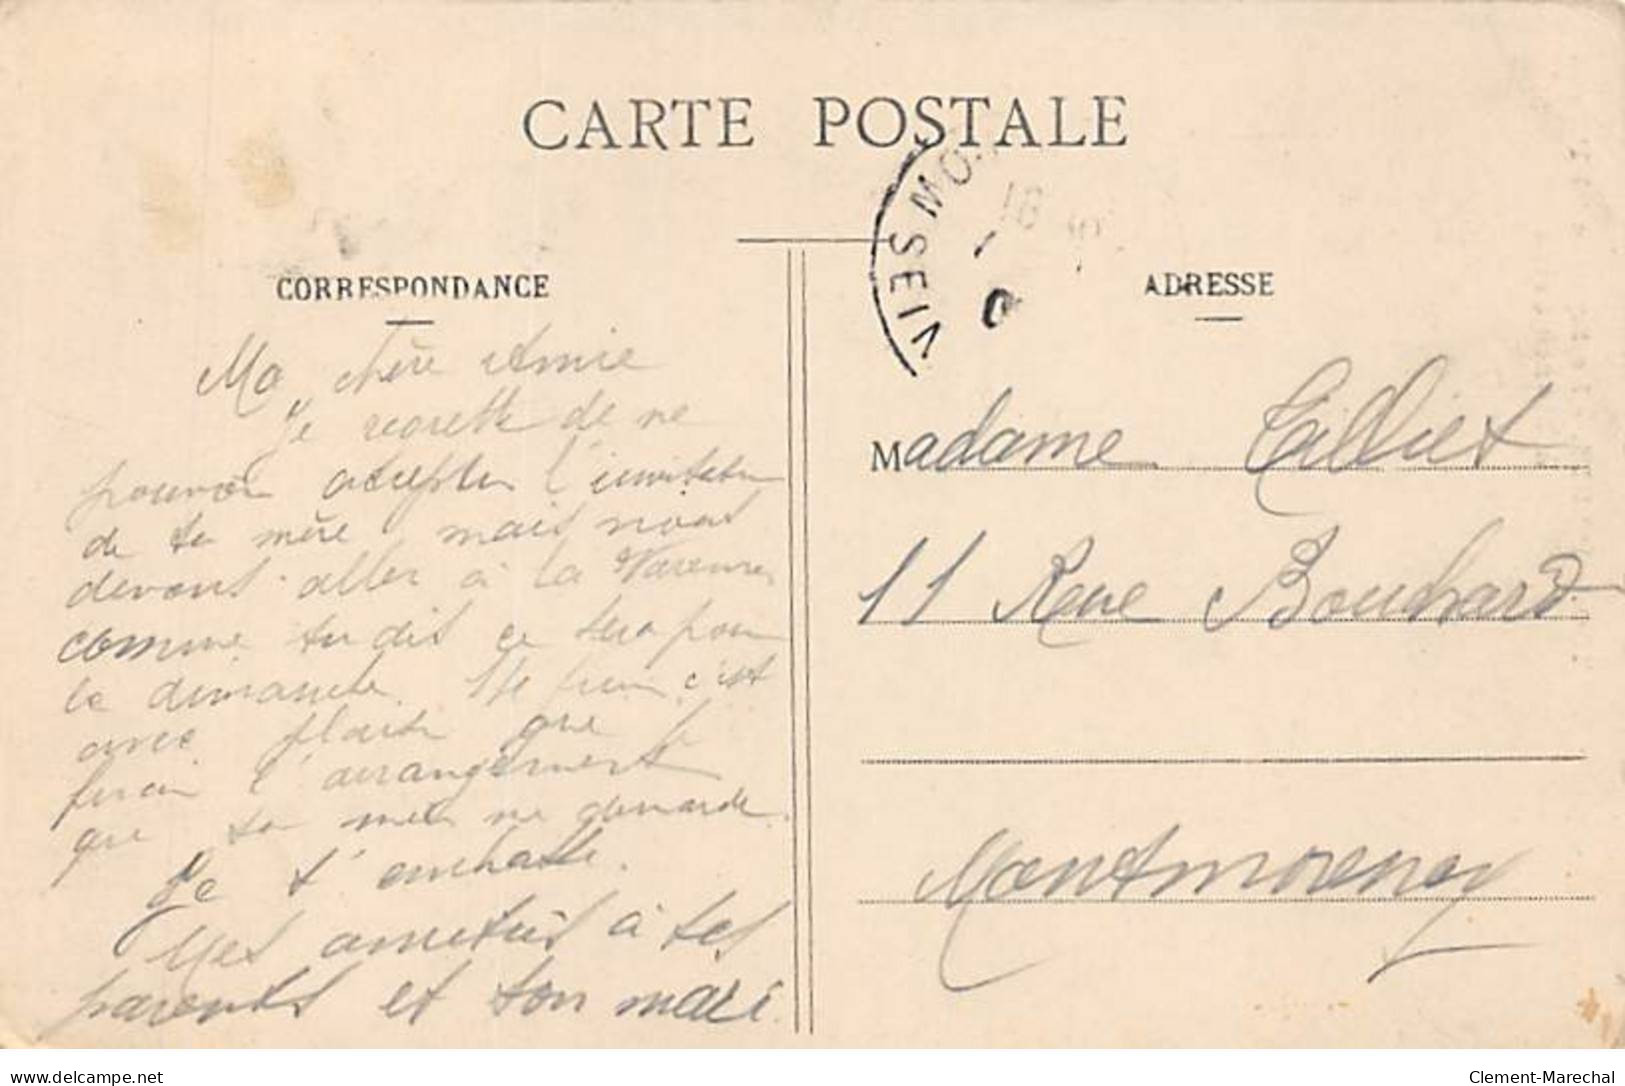 CARTE POSTALE
CORRESPONDANCE
Ma chère Amie
Je regrette de ne
pouvoir accepter l'invitation
de ta mère mais nous
devons aller à la Varenne
comme tu dis ce sera pour
le dimanche. c'est
avec plaisir que
ferai l'arrangement
que ta me demande.
Je t'embrasse.
Mes amitiés à tes
parents et ton mari
MO
SEI
ADRESSE
Madame Talliet
11 Rue Bouchard
Montmorency
delcampe.net
Clement-Marechal